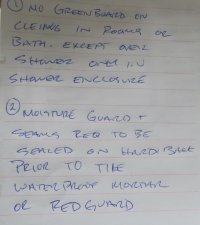 ① NO GREENBOARD ON
CLEING IN ROOMS OR
BATH. EXCEPT OVER
SHOWER
SHOWER ENCLOSURE
② MOISTURE GUARD +
SEAMS REQ TO BE
SEALED ON HARDIBACK
PRIOR TO TILE
WATERPROOF MORTAR
OR REDGUARD